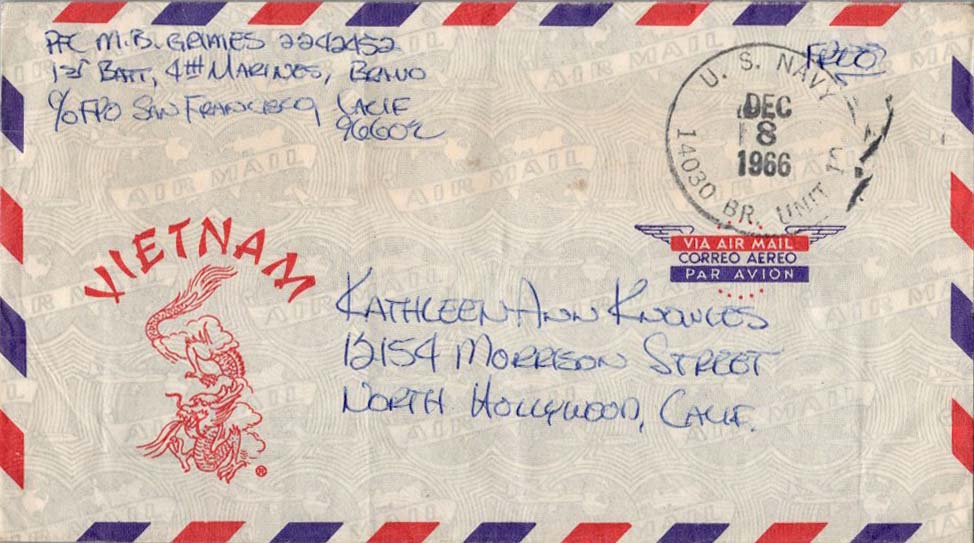 PFC M.B. GRIMES 2242452
1ST BATT, 4TH MARINES, BRAVO
C/O FPO SAN FRANCISCO, CALIF
96602
FREE
U. S. NAVY
DEC
8
1966
14030 BR. UNIT
VIA AIR MAIL
CORREO AEREO
PAR AVION
VIETNAM
®
KATHLEEN ANN KNOWLES
12154 MORRISON STREET
NORTH HOLLYWOOD, CALIF.
AIR MAIL
AIR MAIL
AIR MAIL